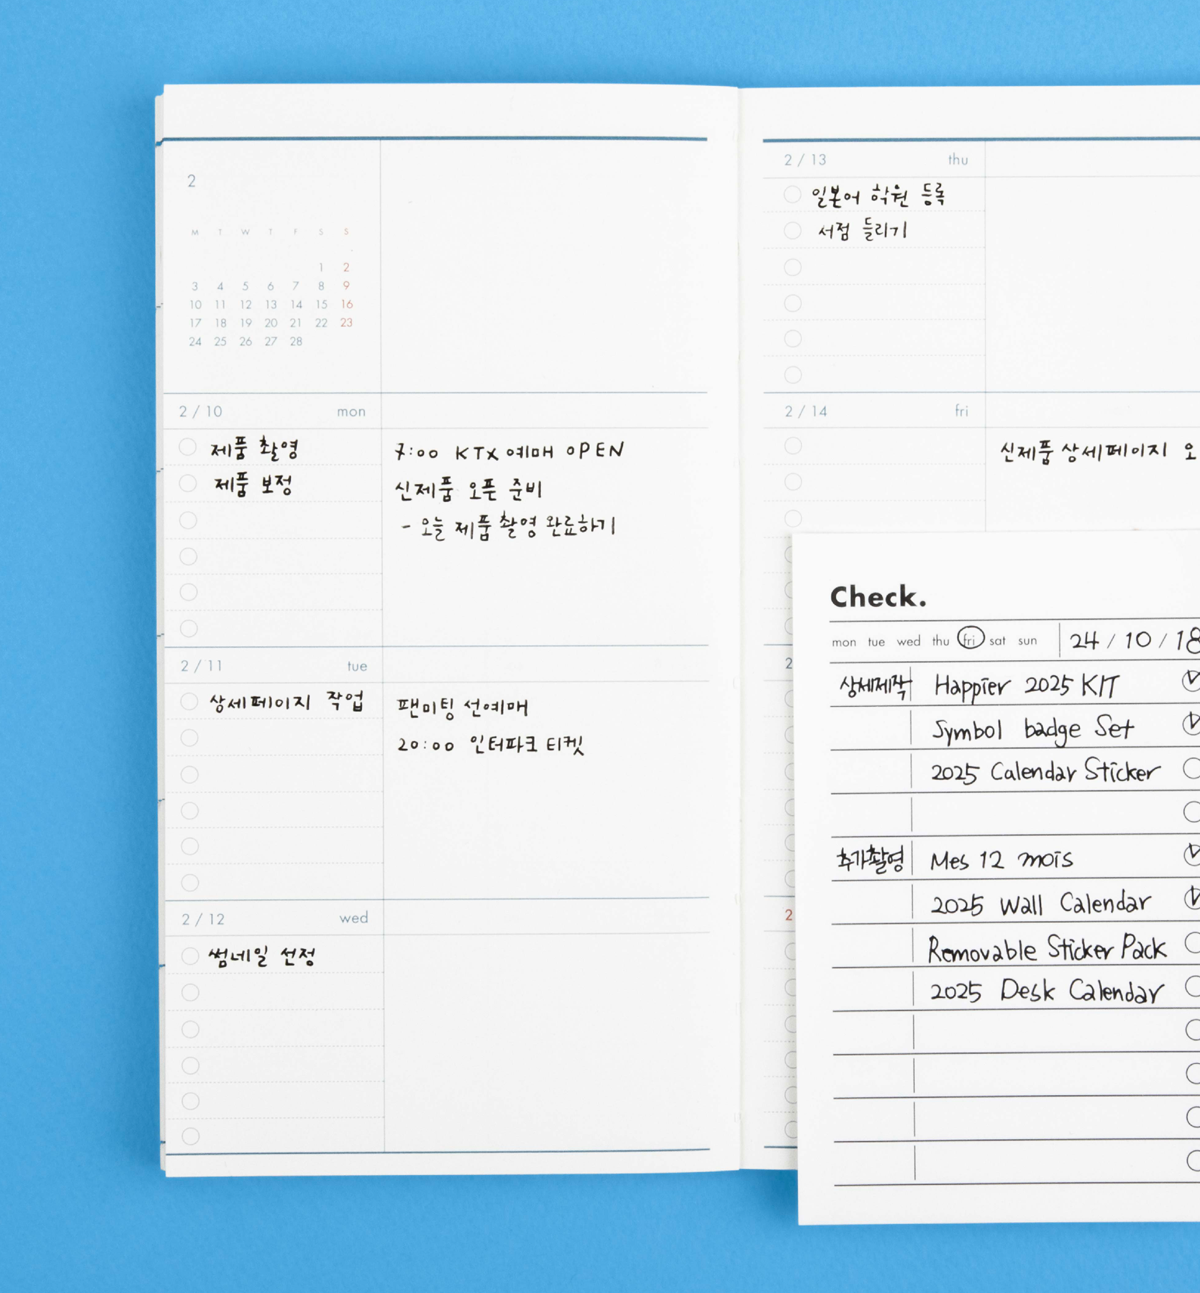 2
M T W T F S S
1 2
3 4 5 6 7 8 9
10 11 12 13 14 15 16
17 18 19 20 21 22 23
24 25 26 27 28
2 / 10 mon
제품 촬영
제품 보정
7:00 KTX 예매 OPEN
신제품 오픈 준비
- 오늘 제품 촬영 완료하기
2 / 11 tue
상세페이지 작업
팬미팅 선예매
20:00 인터파크 티켓
2 / 12 wed
썸네일 선정
2 / 13 thu
일본어 학원 등록
서점 들리기
2 / 14 fri
신제품 상세페이지 오
2
2
Check.
mon tue wed thu fri sat sun 24 / 10 / 18
상세제작 Happier 2025 KIT
Symbol badge Set
2025 Calendar Sticker
추가촬영 Mes 12 mois
2025 Wall Calendar
Removable Sticker Pack
2025 Desk Calendar